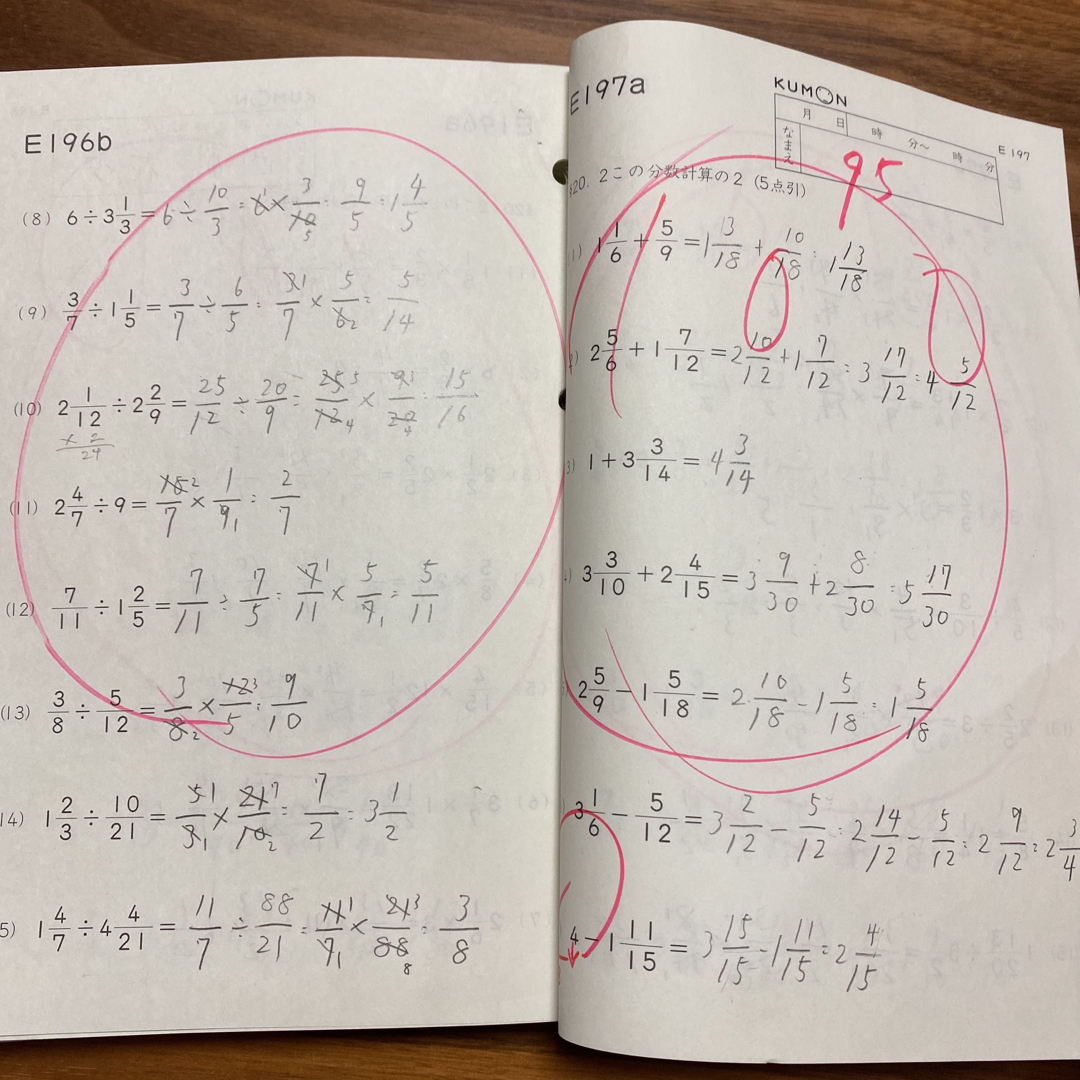 E196b
(8) 6÷3 1/3 = 6÷10/3 = 6 1 × 3/10 5 = 9/5 = 1 4/5
(9) 3/7÷1 1/5 = 3/7÷6/5 = 3 1/7 × 5/6 2 = 5/14
(10) 2 1/12÷2 2/9 = 25/12÷20/9 = 25 5/12 4 × 9 3/20 4 = 15/16
× 2
24
(11) 2 4/7÷9 = 18 2/7 × 1/9 1 = 2/7
(12) 7/11÷1 2/5 = 7/11÷7/5 = 7 1/11 × 5/7 1 = 5/11
(13) 3/8÷5/12 = 3/8 2 × 12 3/5 = 9/10
14) 1 2/3÷10/21 = 5 1/3 1 × 21 7/10 2 = 7/2 = 3 1/2
5) 1 4/7÷4 4/21 = 11/7÷88/21 = 11 1/7 1 × 21 3/88 8 = 3/8
E197a
KUMON
E197
月 日 時 分〜 時 分
なまえ
95
§20. 2この分数計算の2 (5点引)
1) 1 1/6 + 5/9 = 1 3/18 + 10/18 = 1 13/18
2) 2 5/6 + 1 7/12 = 2 10/12 + 1 7/12 = 3 17/12 = 4 5/12
3) 1 + 3 3/14 = 4 3/14
4) 3 3/10 + 2 4/15 = 3 9/30 + 2 8/30 = 5 17/30
2 5/9 − 1 5/18 = 2 10/18 − 1 5/18 = 1 5/18
3 1/6 − 5/12 = 3 2/12 − 5/12 = 2 14/12 − 5/12 = 2 9/12 = 2 3/4
4 − 1 11/15 = 3 15/15 − 1 11/15 = 2 4/15